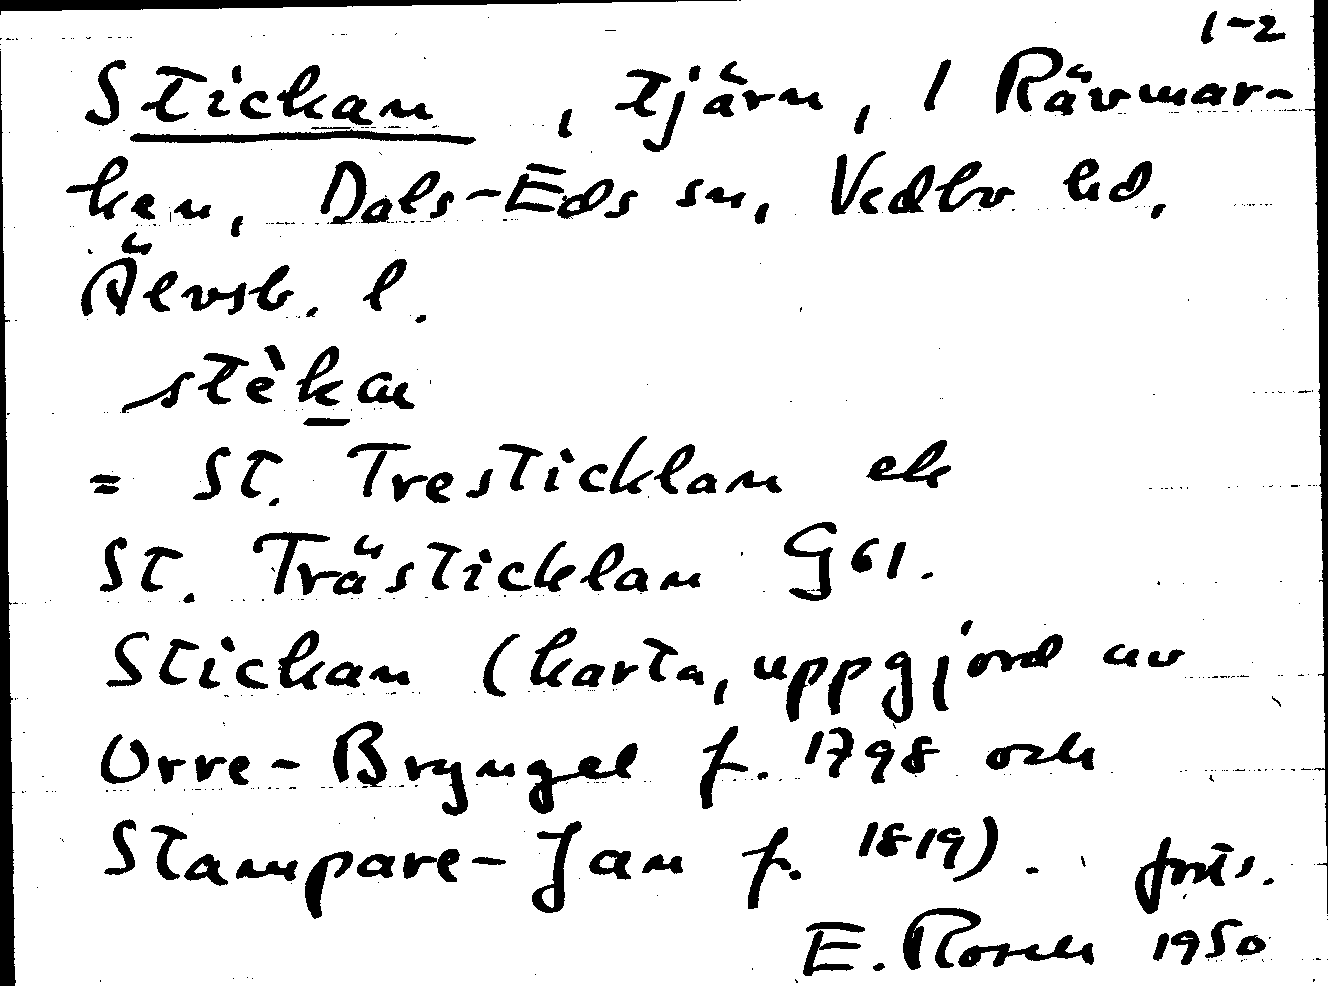 1-2
Stickan, tjärn, 1 Rävmar-
ken, Dals-Eds sn, Vedbo hd,
Älvsb. l.
stèkan
= St. Tresticklan el
St. Trästicklan G61.
Stickan (karta, uppgjord av
Orre-Bryngel f. 1798 och
Stampare-Jan f. 1819). forts.
E. Rosell 1950